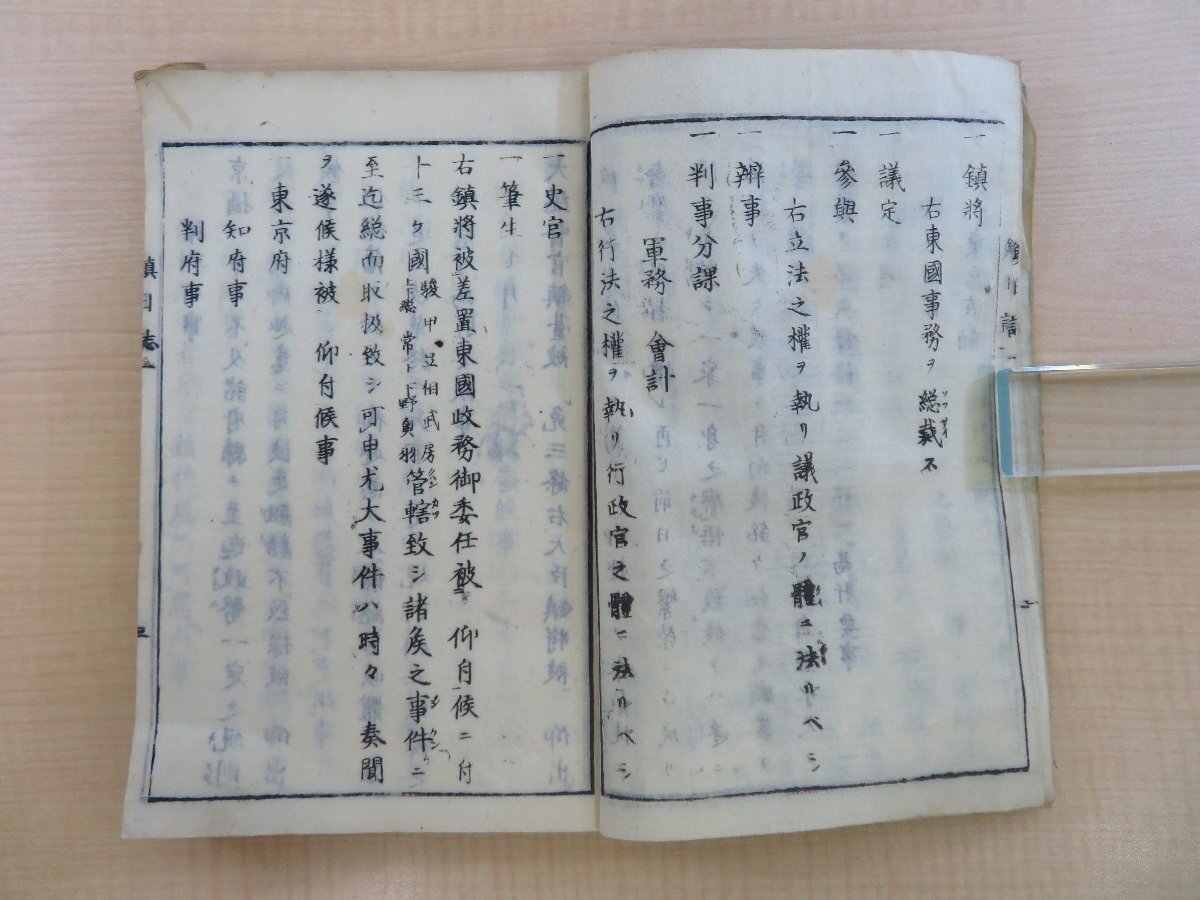 一 鎮將
右東國事務ヲ総裁ス
一 議定
一 參與
右立法之權ヲ執リ議政官ノ體ニ法ルベシ
一 辨事
一 判事分課
軍務 會計
右行法之權ヲ執リ行政官之體ニ法ルベシ
一 史官
一 筆生
右鎮將被差置東國政務御委任被 仰付候ニ付
ト三ケ國 駿甲豆相武房上総常上下野奥羽 管轄致シ諸矦之事件ニ
至迄総而取扱致シ可申尤大事件ハ時々 奏聞
ヲ遂候様被 仰付候事
東京府
知府事
判府事
鎮日誌 二
三